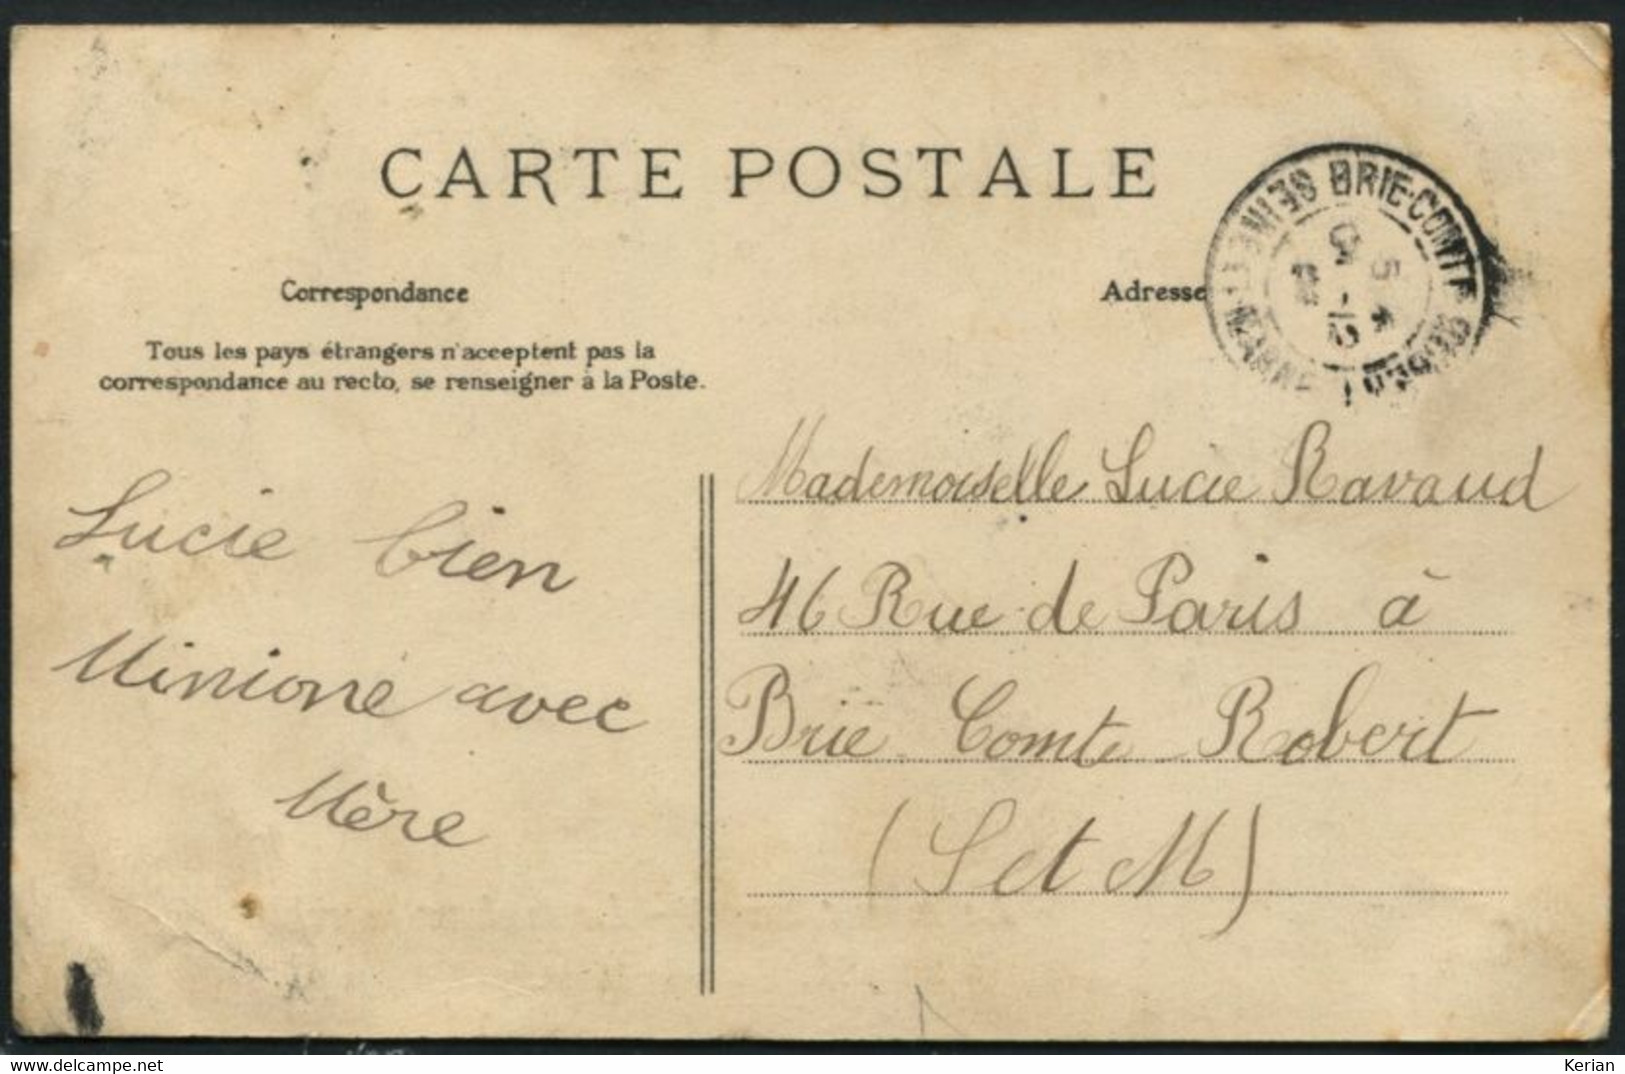 CARTE POSTALE
Correspondance
Adresse
Tous les pays étrangers n'acceptent pas la
correspondance au recto, se renseigner à la Poste.
Lucie bien
Minione avec
Mère
Mademoiselle Lucie Ravaud
46 Rue de Paris à
Brie Comte Robert
(S et M)
BRIE-COMTE ROBERT
SEINE-ET-MARNE
Kerian